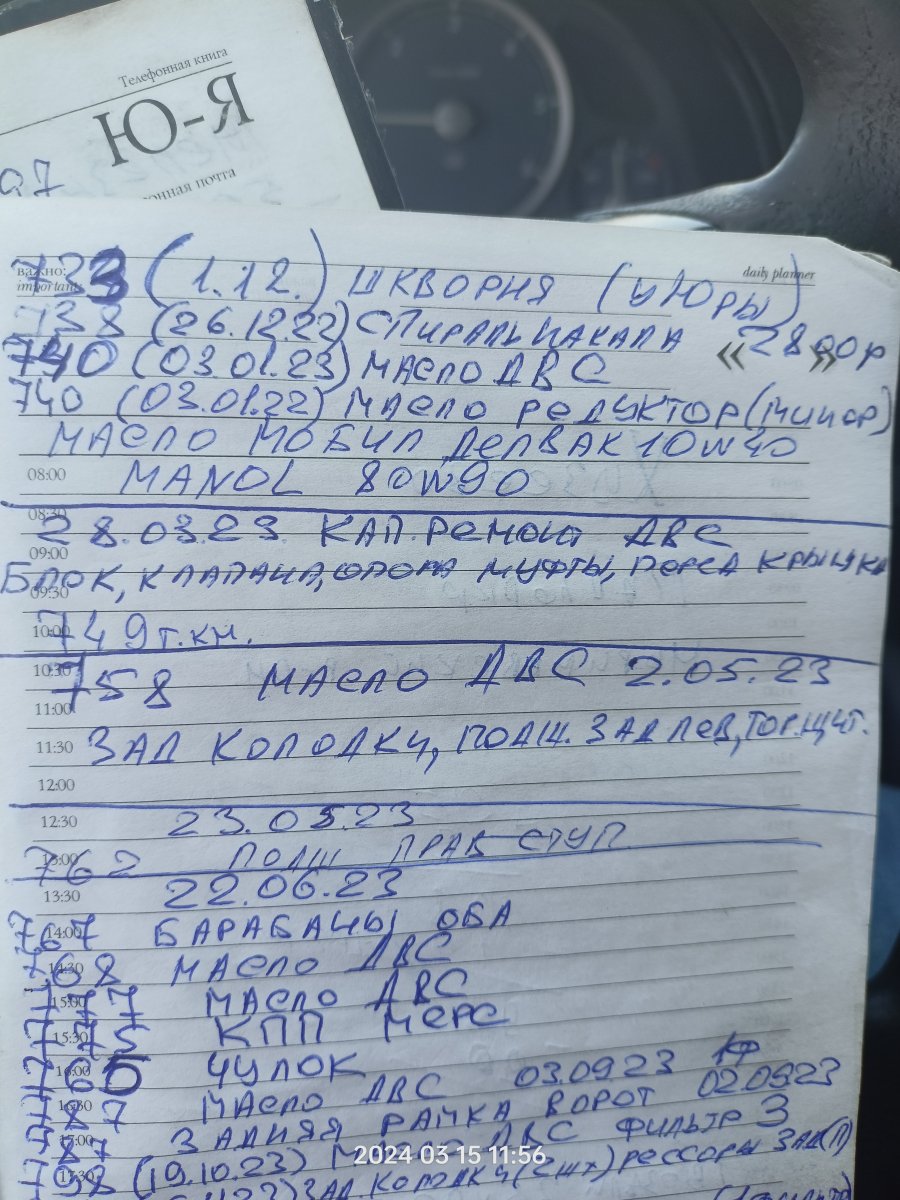 Телефонная книга
Ю-Я
97
онная почта
важно:
important:
daily planner
723 (1.12.) ШКВОРНЯ (У ЮРЫ)
738 (26.12.22) СПИРАЛЬ НАКАЛА «2800р»
740 (03.01.23) МАСЛО ДВС
740 (03.01.22) МАСЛО РЕДУКТОР (МИНОР)
МАСЛО МОБИЛ ДЕЛВАК 10W40
08:00 MANOL 80W90
08:30
28.03.23 КАП. РЕМОНТ ДВС
09:00
БЛОК, КЛАПАНА, ОПОРА МУФТЫ, ПЕРЕД КРЫШКА
09:30
10:00 749 т.км.
10:30
758 МАСЛО ДВС 2.05.23
11:00
11:30 ЗАД КОЛОДКИ, ПОДШ. ЗАД ЛЕВ, ТОР. ЩИТ.
12:00
12:30 23.05.23
13:00 762 ПОДШ ПРАВ СТУП.
13:30 22.06.23
14:00 767 БАРАБАНЫ ОБА
14:30 768 МАСЛО ДВС
15:00 777 МАСЛО ДВС
15:30 775 КПП МЕРС
16:00 ЧУЛОК
16:30 787 МАСЛО ДВС 03.09.23 1ф
17:00 787 ЗАДНЯЯ РАМКА ВОРОТ 02.09.23
17:30 798 (19.10.23) МАСЛО ДВС ФИЛЬТР 3
ЗАД. КОЛОДКИ (2шт) РЕССОРЫ ЗАД (П)
2024 03 15 11:56